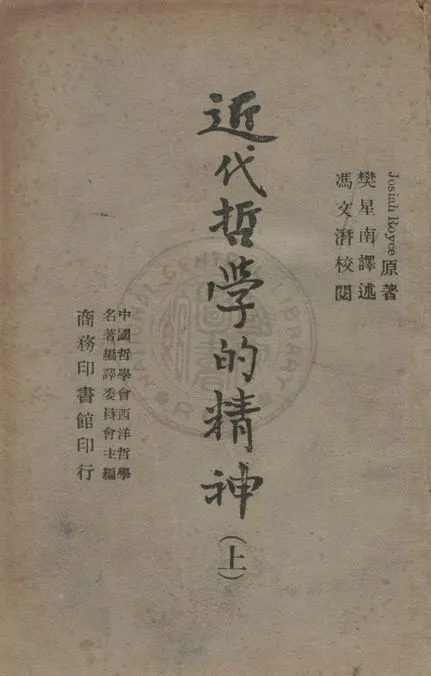 Josiah Royce 原著
樊星南譯述
馮文潛校閱
近代哲學的精神
(上)
中國哲學會西洋哲學
名著編譯委員會主編
商務印書館印行